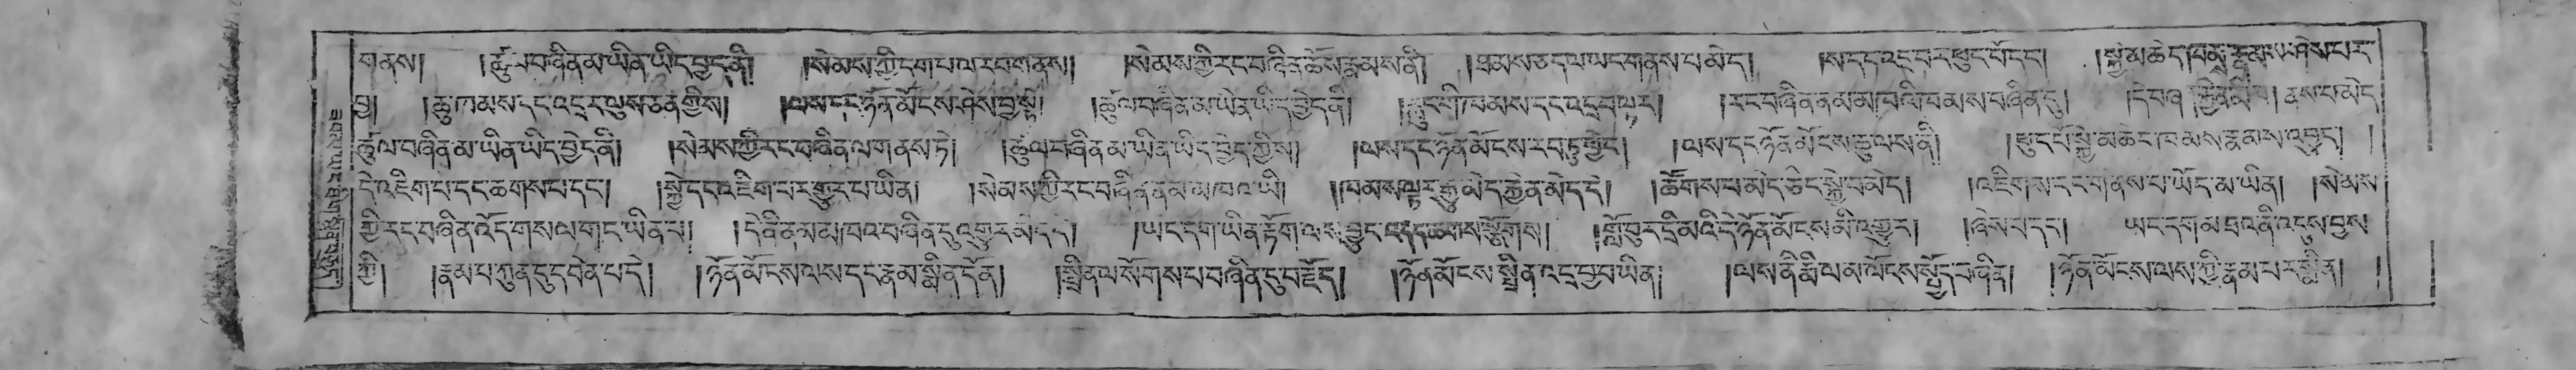 གནས། །ཚུལ་བཞིན་མ་ཡིན་ཡིད་བྱེད་ནི། །སེམས་ཀྱི་དག་པ་ལ་རབ་གནས། །སེམས་ཀྱི་རང་བཞིན་ཆོས་རྣམས་ནི། །ཐམས་ཅད་ལ་ཡང་གནས་པ་མེད། །ས་དང་འདྲ་བར་ཕུང་པོ་དང་། །སྐྱེ་མཆེད་ཁམས་རྣམས་ཤེས་པར་
བྱ། །ཆུ་ཁམས་དང་འདྲ་ལུས་ཅན་གྱིས། །ལས་དང་ཉོན་མོངས་ཤེས་བྱ་སྟེ། །ཚུལ་བཞིན་མ་ཡིན་ཡིད་བྱེད་ནི། །རླུང་གི་ཁམས་དང་འདྲ་བལྟར། །རང་བཞིན་ནམ་མཁའི་ཁམས་བཞིན་དུ། །དེ་བཞིན་ གནས་པ་མེད
ཚུལ་བཞིན་མ་ཡིན་ཡིད་བྱེད་ནི། །སེམས་ཀྱི་རང་བཞིན་ལ་གནས་ཏེ། །ཚུལ་བཞིན་མ་ཡིན་ཡིད་བྱེད་ཀྱིས། །ལས་དང་ཉོན་མོངས་རབ་ཏུ་ཕྱེད། །ལས་དང་ཉོན་མོངས་ཆུ་ལས་ནི། །ཕུང་པོ་སྐྱེ་མཆེད་ཁམས་རྣམས་འབྱུང་། །
དེ་འཇིག་པ་དང་ཆགས་པ་དང་། །སྐྱེ་དང་འཇིག་པར་གྱུར་པ་ཡིན། །སེམས་ཀྱི་རང་བཞིན་ནམ་མཁའ་ཡི། །ཁམས་ལྟར་རྒྱུ་མེད་རྐྱེན་མེད་དེ། །ཚོགས་པ་མེད་ཅིང་སྐྱེ་བ་མེད། །འཇིག་ས་དང་གནས་པ་ཡོད་མ་ཡིན། །སེམས་
ཀྱི་རང་བཞིན་འོད་གསལ་གང་ཡིན་པ། །དེ་ནི་ནམ་མཁའ་བཞིན་དུ་འགྱུར་མེད་དེ། །ཡང་དག་མིན་རྟོག་ལས་བྱུང་འདོད་ཆགས་སྩོགས། །གློ་བུར་དྲི་མའི་དེ་ཉོན་མོངས་མི་འགྱུར། །ཞེས་པ་དང་། ཡང་དག་མཐའ་ནི་འདུས་བྱས་
ཀྱི། །རྣམ་པ་ཀུན་དུ་དབེན་པ་དེ། །ཉོན་མོངས་ལས་དང་རྣམ་སྨིན་དོན། །སྤྲིན་ལ་སོགས་པ་བཞིན་དུ་བརྗོད། །ཉོན་མོངས་སྤྲིན་འདྲ་བྱ་བ་ཡིན། །ལས་ནི་རྨི་ལམ་ལོངས་སྤྱོད་བཞིན། །ཉོན་མོངས་ལས་ཀྱི་རྣམ་པར་སྨིན། །